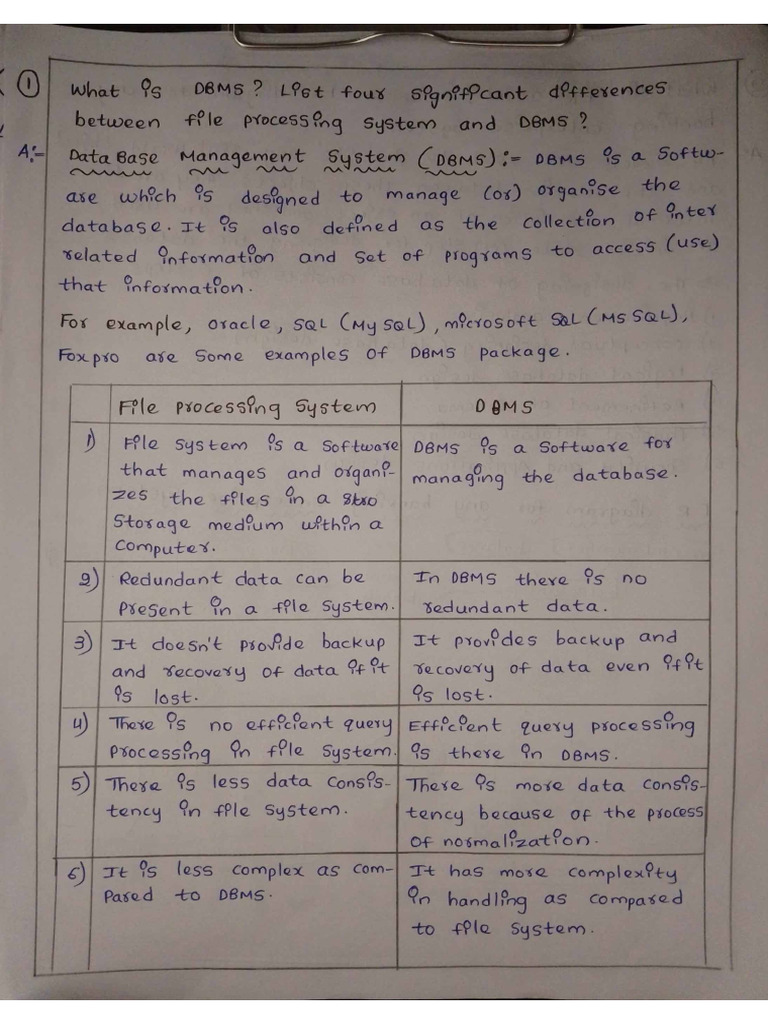 ① What is DBMS? List four significant differences
between file processing system and DBMS?
A:- Data Base Management System (DBMS):- DBMS is a Softw-
are which is designed to manage (or) organise the
database. It is also defined as the collection of inter
related information and set of programs to access (use)
that information.
For example, oracle, SQL (My SQL), microsoft SQL (MS SQL),
Foxpro are some examples of DBMS package.
File processing System
DBMS
1) File system is a software
that manages and organi-
zes the files in a stro
Storage medium within a
computer.
DBMS is a Software for
managing the database.
2) Redundant data can be
present in a file system.
In DBMS there is no
redundant data.
3) It doesn't provide backup
and recovery of data if it
is lost.
It provides backup and
recovery of data even if it
is lost.
4) There is no efficient query
processing in file system.
Efficient query processing
is there in DBMS.
5) There is less data consis-
tency in file system.
There is more data consis-
tency because of the process
of normalization.
6) It is less complex as com-
pared to DBMS.
It has more complexity
in handling as compared
to file system.